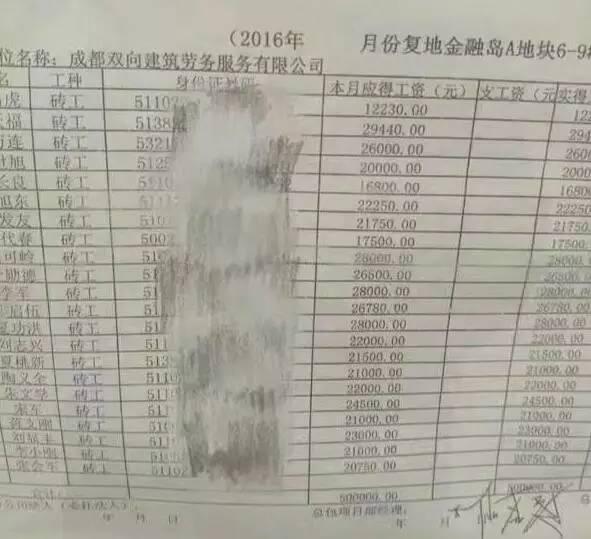 （2016年 月份复地金融岛A地块6-9#
位名称：成都双向建筑劳务服务有限公司
名 工种 身份证号码 本月应得工资（元） 支工资（元 实得
虎 砖工 51102 12230.00 122
福 砖工 5138 29440.00 2944
连 砖工 5321 26000.00 2600
旭 砖工 5125 20000.00 20000
长良 砖工 16800.00 16800
旭东 砖工 511 22250.00 22250
发友 砖工 510 21750.00 21750.
代春 砖工 5002 17500.00 17500.
可岭 砖工 510 28000.00 28000.
勋德 砖工 511 26500.00 26500.
李军 砖工 51 28000.00 28000.0
启伍 砖工 51 26780.00 26780.0
夏功洪 砖工 511 28000.00 28000.0
刘志兴 砖工 511 22000.00 22000.0
夏桃新 砖工 513 21500.00 21500.0
陶义全 砖工 5110 21000.00 21000.0
张文学 砖工 511 22000.00 22000.0
宋军 砖工 511 24500.00 24500.0
蒋文刚 砖工 511 21000.00 21000.0
砖工 511 23000.00 23000.0
李小刚 砖工 511 21000.00 21000.0
张会军 砖工 51102 20750.00 20750.0
合计： 500000.00 500000.00
总包项目部经理：
年 月 日 年 月